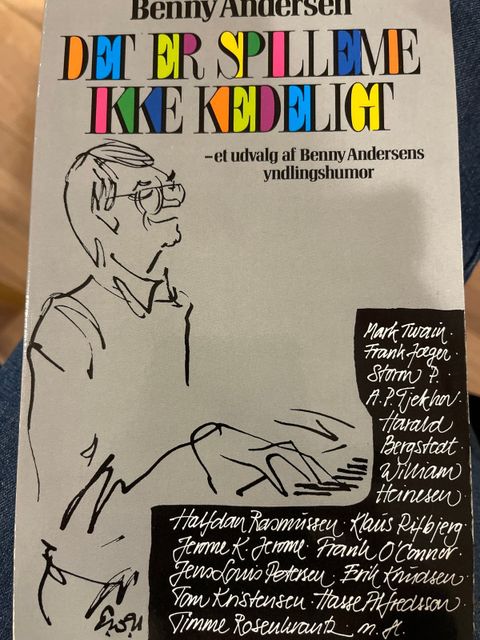 Benny Andersen
DET ER SPILLEME
IKKE KEDELIGT
– et udvalg af Benny Andersens
yndlingshumor
Mark Twain ·
Frank Jæger ·
Storm P. ·
A.P. Tjekhov ·
Harald
Bergstedt ·
William
Heinesen ·
Halfdan Rasmussen · Klaus Rifbjerg ·
Jerome K. Jerome · Frank O'Connor ·
Jens Louis Petersen · Erik Knudsen ·
Tom Kristensen · Hasse Alfredsson ·
Timme Rosenkrantz m. fl.